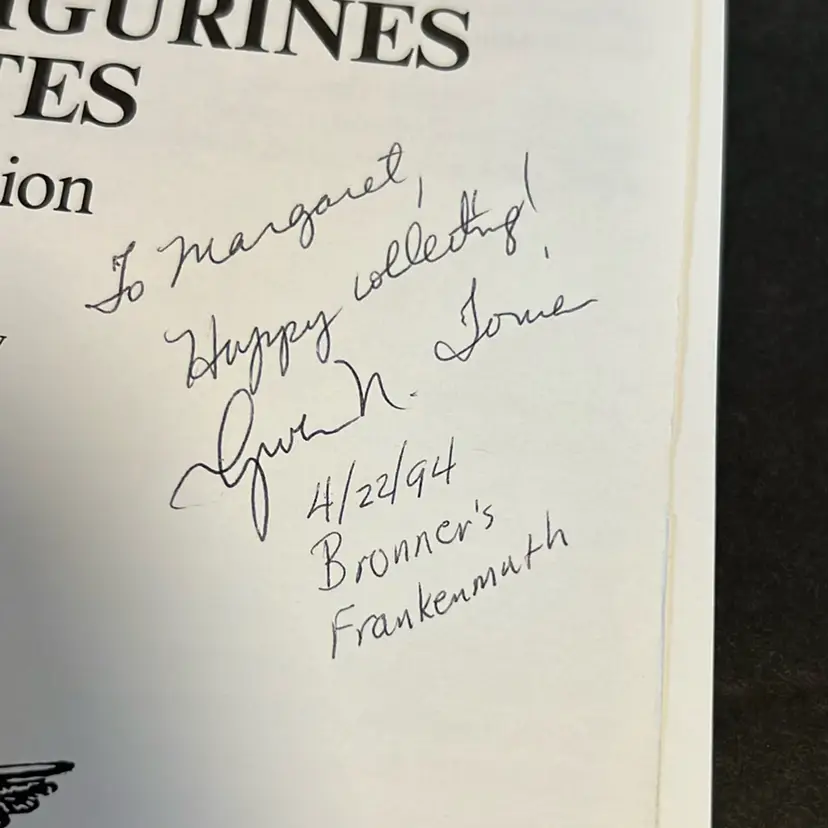 IGURINES
TES
ion
To Margaret,
Happy collecting!
Gwen N. Toma
4/22/94
Bronner's
Frankenmuth